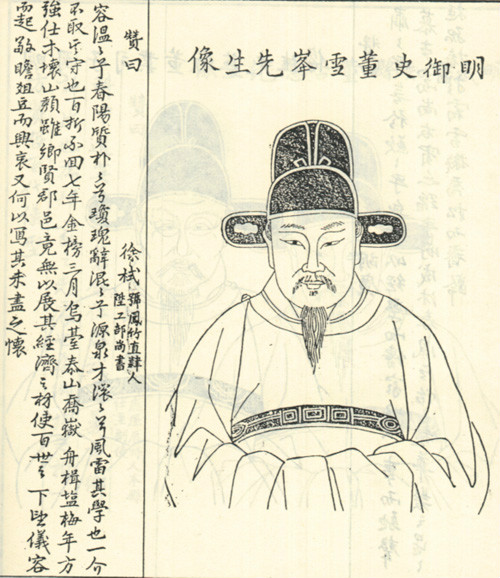 明御史董雪岑先生像
贊曰
徐栻
號鳳竹直隸人
陞工部尚書
容溫〻乎春陽質朴〻兮瓊瑰辭混〻乎源泉才滾〻兮風雷其學也一介
不取其守也百折不回七年金榜三月烏臺泰山喬嶽舟楫塩梅年方
強仕木壞山頹雖鄉賢郡邑竟無以展其經濟之材使百世之下望儀容
而起敬瞻俎豆而興哀又何以寫其未盡之懷